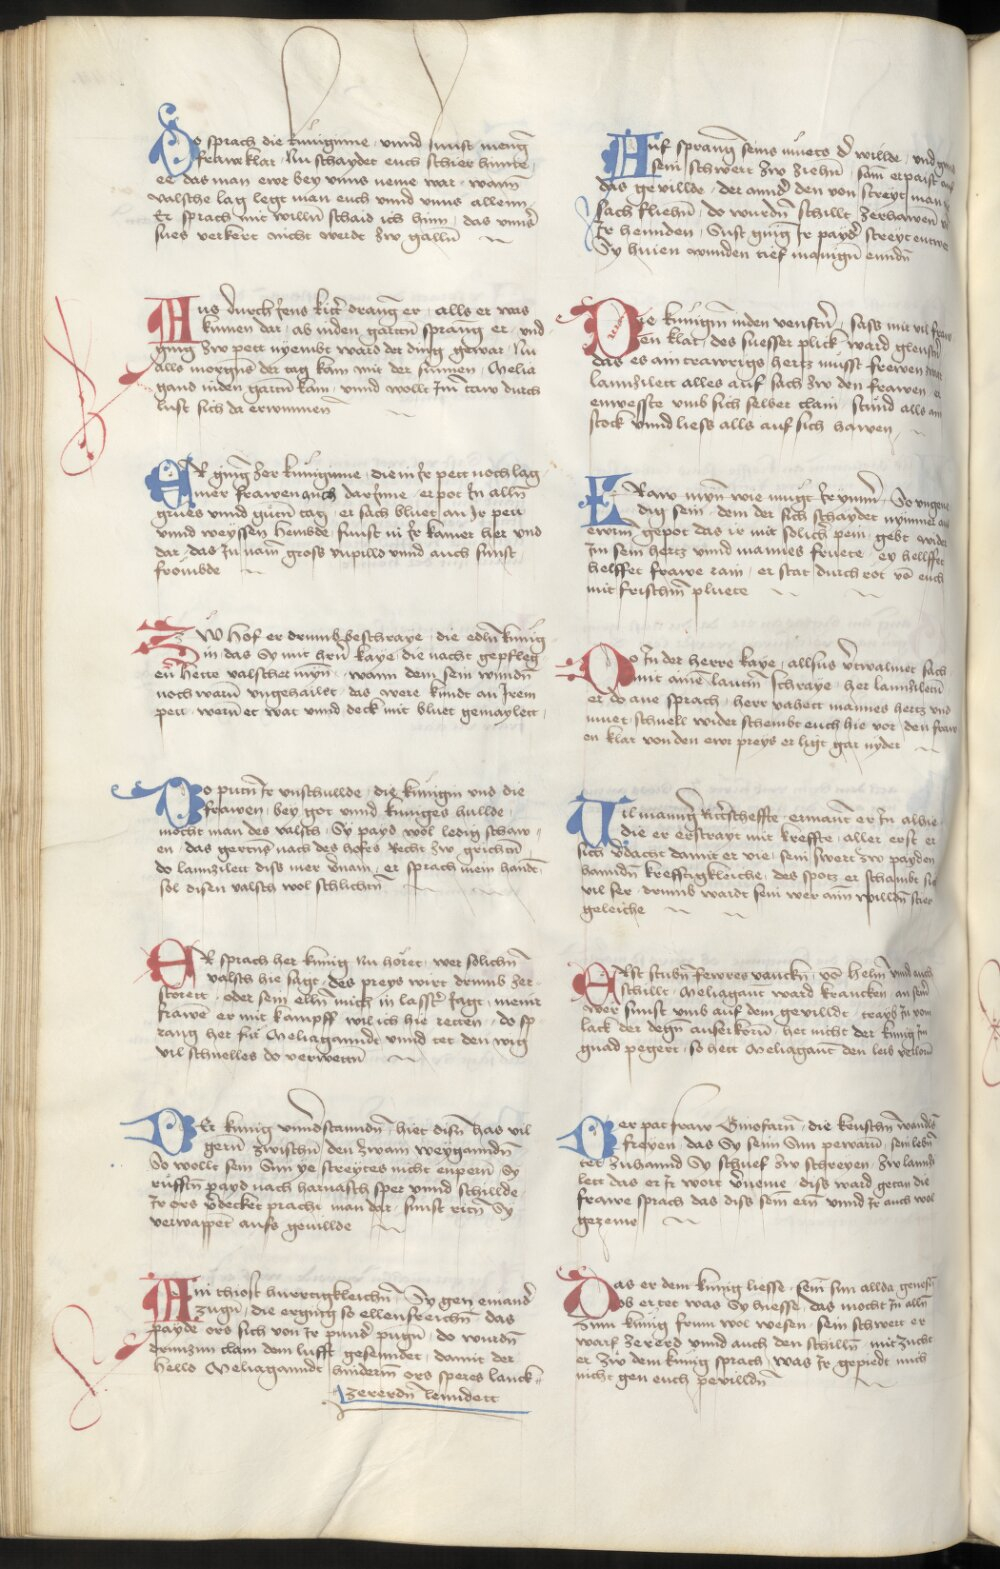 Do sprach die kuniginne · vnnd sunst meng
frawe klar · Nu schaydet euch schier hinne ·
ee das man ewr bey vnns neme war · wann
valsche lag legt man euch vnnd vnns allenn ·
Er sprach mit willn schaid ich hinn · das vnnser
sues verkert nicht werdt zw galln
Aus durch sens drang er · alls er was
kumen dar · ab inden garttn sprang er · vnd
ging zw pett nyembt wars der ding gewar · Nu
alls morgens der tag kam mit der sunnen · Melia
gand inden gartn kam · vnnd wollt Im taw durch
lust sich da erwinnen
ER ging zer kuniginne · die in Ir pett noch lag
mer frawen auch darInne · er pot In alln
grues vnnd gutn tag · er sach bluet an Ir pett
vnnd weyssen hembde · sunst in Ir kamer her vnd
dar · das In nam gross vnpilld vnnd auch sunst ·
frombde
ZW Hof er drumb beschraye · die edln kunig
in · das Sy mit hern kaye · die nacht gepfleg
en hette valscher myn · wann dem sein wundn
noch warn vngehailet · das were kundt an Irem
pett · wenn er wat vnnd deck mit bluet gemaylett ·
Do putn Ir vnschullde · die kunigin vnd die
frawen · bey got vnnd kuniges hullde ·
mocht man des valsch · Sy payd wol ledig schaw
en · das gertns nach des hofes Recht zw grichtn
do lannzilett diss mer vernam · er sprach mein handt
sol disen valsch wol schlichtn
ER sprach her kunig Nu horet · wer solichn
valsch hie sagt · des preys wirt drumb zer
storett · oder sein ellen mich in lasster Jagt · meinr
frawe er mit kampff wil ich hie retten · do sp
rang her fur Meliaganndt vnnd tet den wig
vil schnelles do verwettn
DEr kunig vnnderstanndn · hiet disen has vil
gern · zwischn den zwain weyganndn
So wollt sein Sun ye streytes nicht enpern Sy
rufften payd nach harnasch sper vnnd schillde ·
Ir ors verdecket pracht man dar · sunst ritn Sy
verwappet aufs gevillde
Ain thiost hurttigkleichn · Sy gen einander
zugen · die erging so ellensreichn · das
payde ors sich von Ir pund pugn · do wurdn
drunzun clain dem lufft gesenndet · damit der
helld Meliaganndt hinderm ors speres lanck
zererdn lenndett
Auf sprang seins muets der willde · vnd
sein schwert zw ziehn · sam erpaist auf
das gevillde · der annder den von streyt man
sach fliehn · do wurdn schillt zerhawen
Ir hennden · Sust ging Ir payder streyt
Sy huien wunden tief manign enndn
Die kunigin inden venster · sass mit vil fraw
en klar · des suesser plick ward glenster
das es am trawrigs hertz muesst frewen
lannzilett alles auf sach zw den frawen · er
enwesste vmb sich selber clain · stund alls am
stock vnnd liess alls auf sich hawen ·
FRaw myn wie mugt Ir ymmer · So vngene
dig sein · dem der sich schaydet nymmer aus
ewrm gepot das ir mit solicher pein · gebt wider
Im sein hertz vnnd mannes fruete · ey hellffet
helffet frawe rain · er stat durch rot von euch
mit frischm pluete
Do In der herre kaye · allsus vertwalmet sach ·
mit aine lautm schraye · her lannziletn
er do ane sprach · herr vahett mannes hertz vnd
muet · schnell wider schembt euch hie vor · den fraw
en klar von den ewr preys er ligt gar nyder
Vil manng Ritterscheffte · ermant er In alhie ·
die er erstrayt mit kreffte · aller erst er
sich verdacht damit er vie · sein swert zw payden
hanndn krefftigkleiche · des spotz er schambt sich
vil ser · drumb wardt sein wer aim willdn stier
geleiche
ERst stubn fewres vanckn · von helm vnnd auch
schillt · Meliagant ward krancken · an seinr
wer sunst vmb auf dem gevilldt · trayb In vom
lack der degn auserkorn · het nicht der kunig Im
gnad pegert · so hett Meliagant den leib verlorn
Der pat fraw Ginofarn · die keuschn wandls
freyen · das Sy seim Sun pewarn · sein lebn
tet zuhannd Sy schuef zw schreyen · zw lannzi
lett das er Ir wort verneme · diss ward getan die
frawe sprach das diss sein ern vnnd Ir auch wol
gezeme
Das er dem kunig liesse · sein sun allda genesn
Ob er tet was Sy hiesse · das mocht In alln
Sun kunig frum wol wesen · sein schwert er
warf zererd vnnd auch den schilln · mit zucht
er zw dem kunig sprach was Ir gepiedt mich
nicht gen euch pevilldn